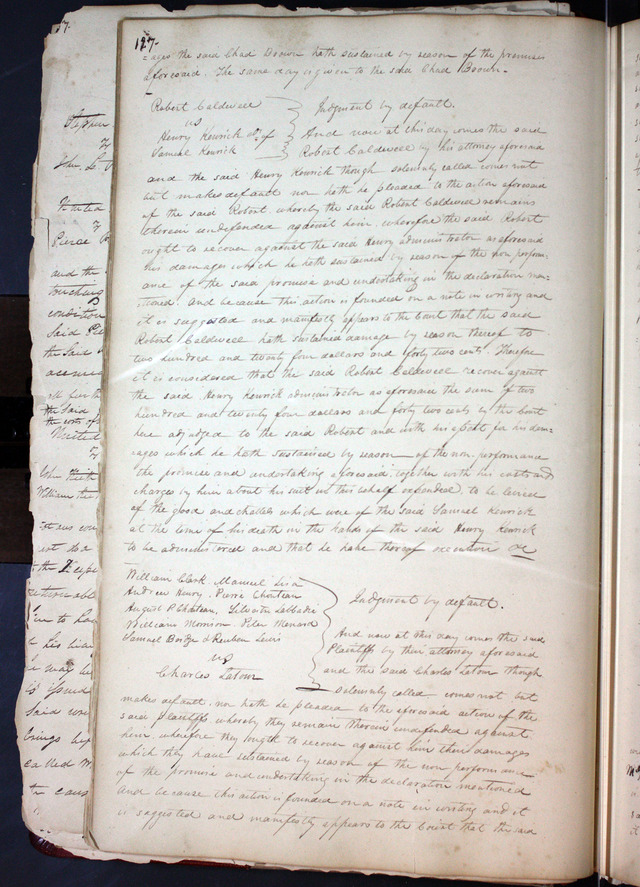 127.
=ages the said Chad Brown hath sustained by reason of the premises
aforesaid. The same day is given to the said Chad Brown.
Robert Caldwell
vs
Henry Kenrick adr of
Samuel Kenrick
Judgment by default.
And now at this day comes the said
Robert Caldwell by his attorney aforesaid
and the said Henry Kenrick though solemnly called comes not
but makes default nor hath he pleaded to the action aforesaid
of the said Robert. whereby the said Robert Caldwell remains
therein undefended against him. wherefore the said Robert
ought to recover against the said Henry administrator as aforesaid
his damages which he hath sustained by reason of the non perform-
ance of the said promise and undertaking in the declaration men-
tioned. And because this action is founded on a note in writing and
it is suggested and manifestly appears to the Court that the said
Robert Caldwell hath sustained damage by reason thereof to
two hundred and twenty four dollars and forty two cents. Therefore
it is considered that the said Robert Caldwell recover against
the said Henry Kenrick administrator as aforesaid the sum of two
hundred and twenty four dollars and forty two cents by the Court
here adjudged to the said Robert and with his assent for his dam-
ages which he hath sustained by reason of the non performance
the promise and undertaking aforesaid together with his costs and
charges by him about his suit in this behalf expended, to be levied
of the good and chattles which were of the said Samuel Kenrick
at the time of his death in the hands of the said Henry Kenrick
to be administered and that he have thereof execution &c
William Clark Manuel Lisa
Andrew Henry. Pierre Chouteau
August P. Chouteau, Silvester Labbadie
William Morrison. Peter Menard
Samuel Bridge & Reuben Lewis
vs
Charles Latour
Judgment by default.
And now at this day comes the said
Plaintiffs by their attorney aforesaid
and the said Charles Latour though
solemnly called comes not but
makes default. nor hath he pleaded to the aforesaid action of the
said plaintiffs whereby they remain therein undefended against
him wherefore they ought to recover against him their damages
which they have sustained by reason of the non performance
of the promise and undertaking in the declaration mentioned
And because this action is founded on a note in writing and it
is suggested and manifestly appears to the Court that the said
Stephen
John L.
United
Pierre
and the
touching
condition
Said
the Said
the Said
the costs of
United
John
William
to the
in to hav
his
Said
brings
called